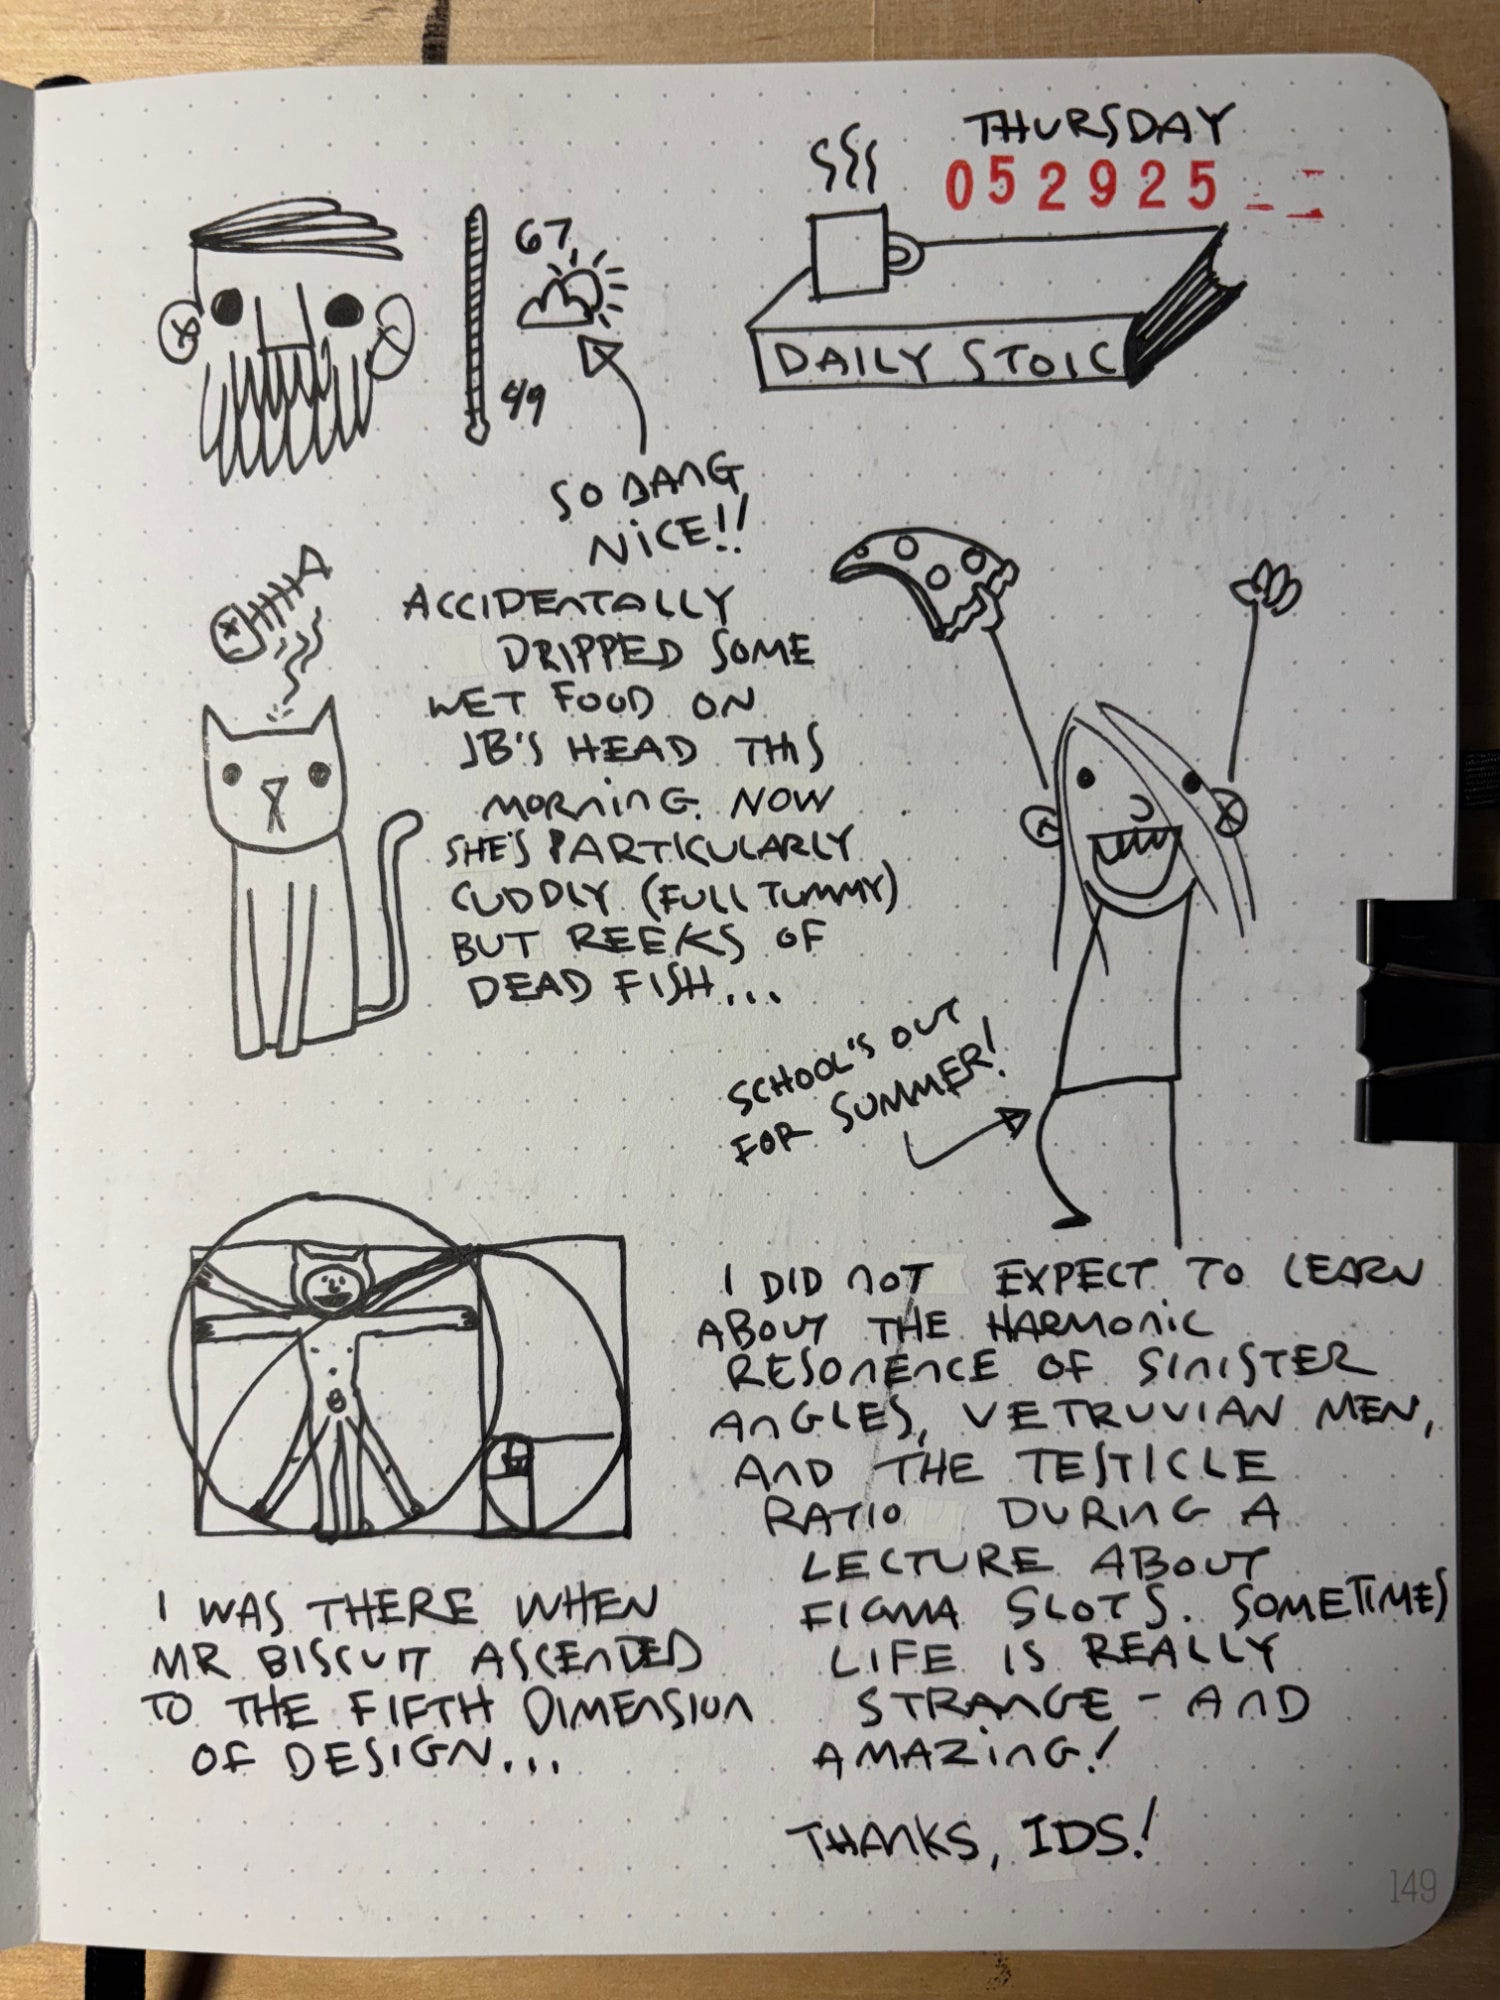 THURSDAY
052925
67
49
SO DANG
NICE!!
DAILY STOIC
ACCIDENTALLY
DRIPPED SOME
WET FOOD ON
JB'S HEAD THIS
MORNING. NOW
SHE'S PARTICULARLY
CUDDLY (FULL TUMMY)
BUT REEKS OF
DEAD FISH...
SCHOOL'S OUT
FOR SUMMER!
I WAS THERE WHEN
MR BISCUIT ASCENDED
TO THE FIFTH DIMENSION
OF DESIGN...
I DID NOT EXPECT TO LEARN
ABOUT THE HARMONIC
RESONENCE OF SINISTER
ANGLES, VETRUVIAN MEN,
AND THE TESTICLE
RATIO DURING A
LECTURE ABOUT
FIGMA SLOTS. SOMETIMES
LIFE IS REALLY
STRANGE - AND
AMAZING!
THANKS, IDS!
149